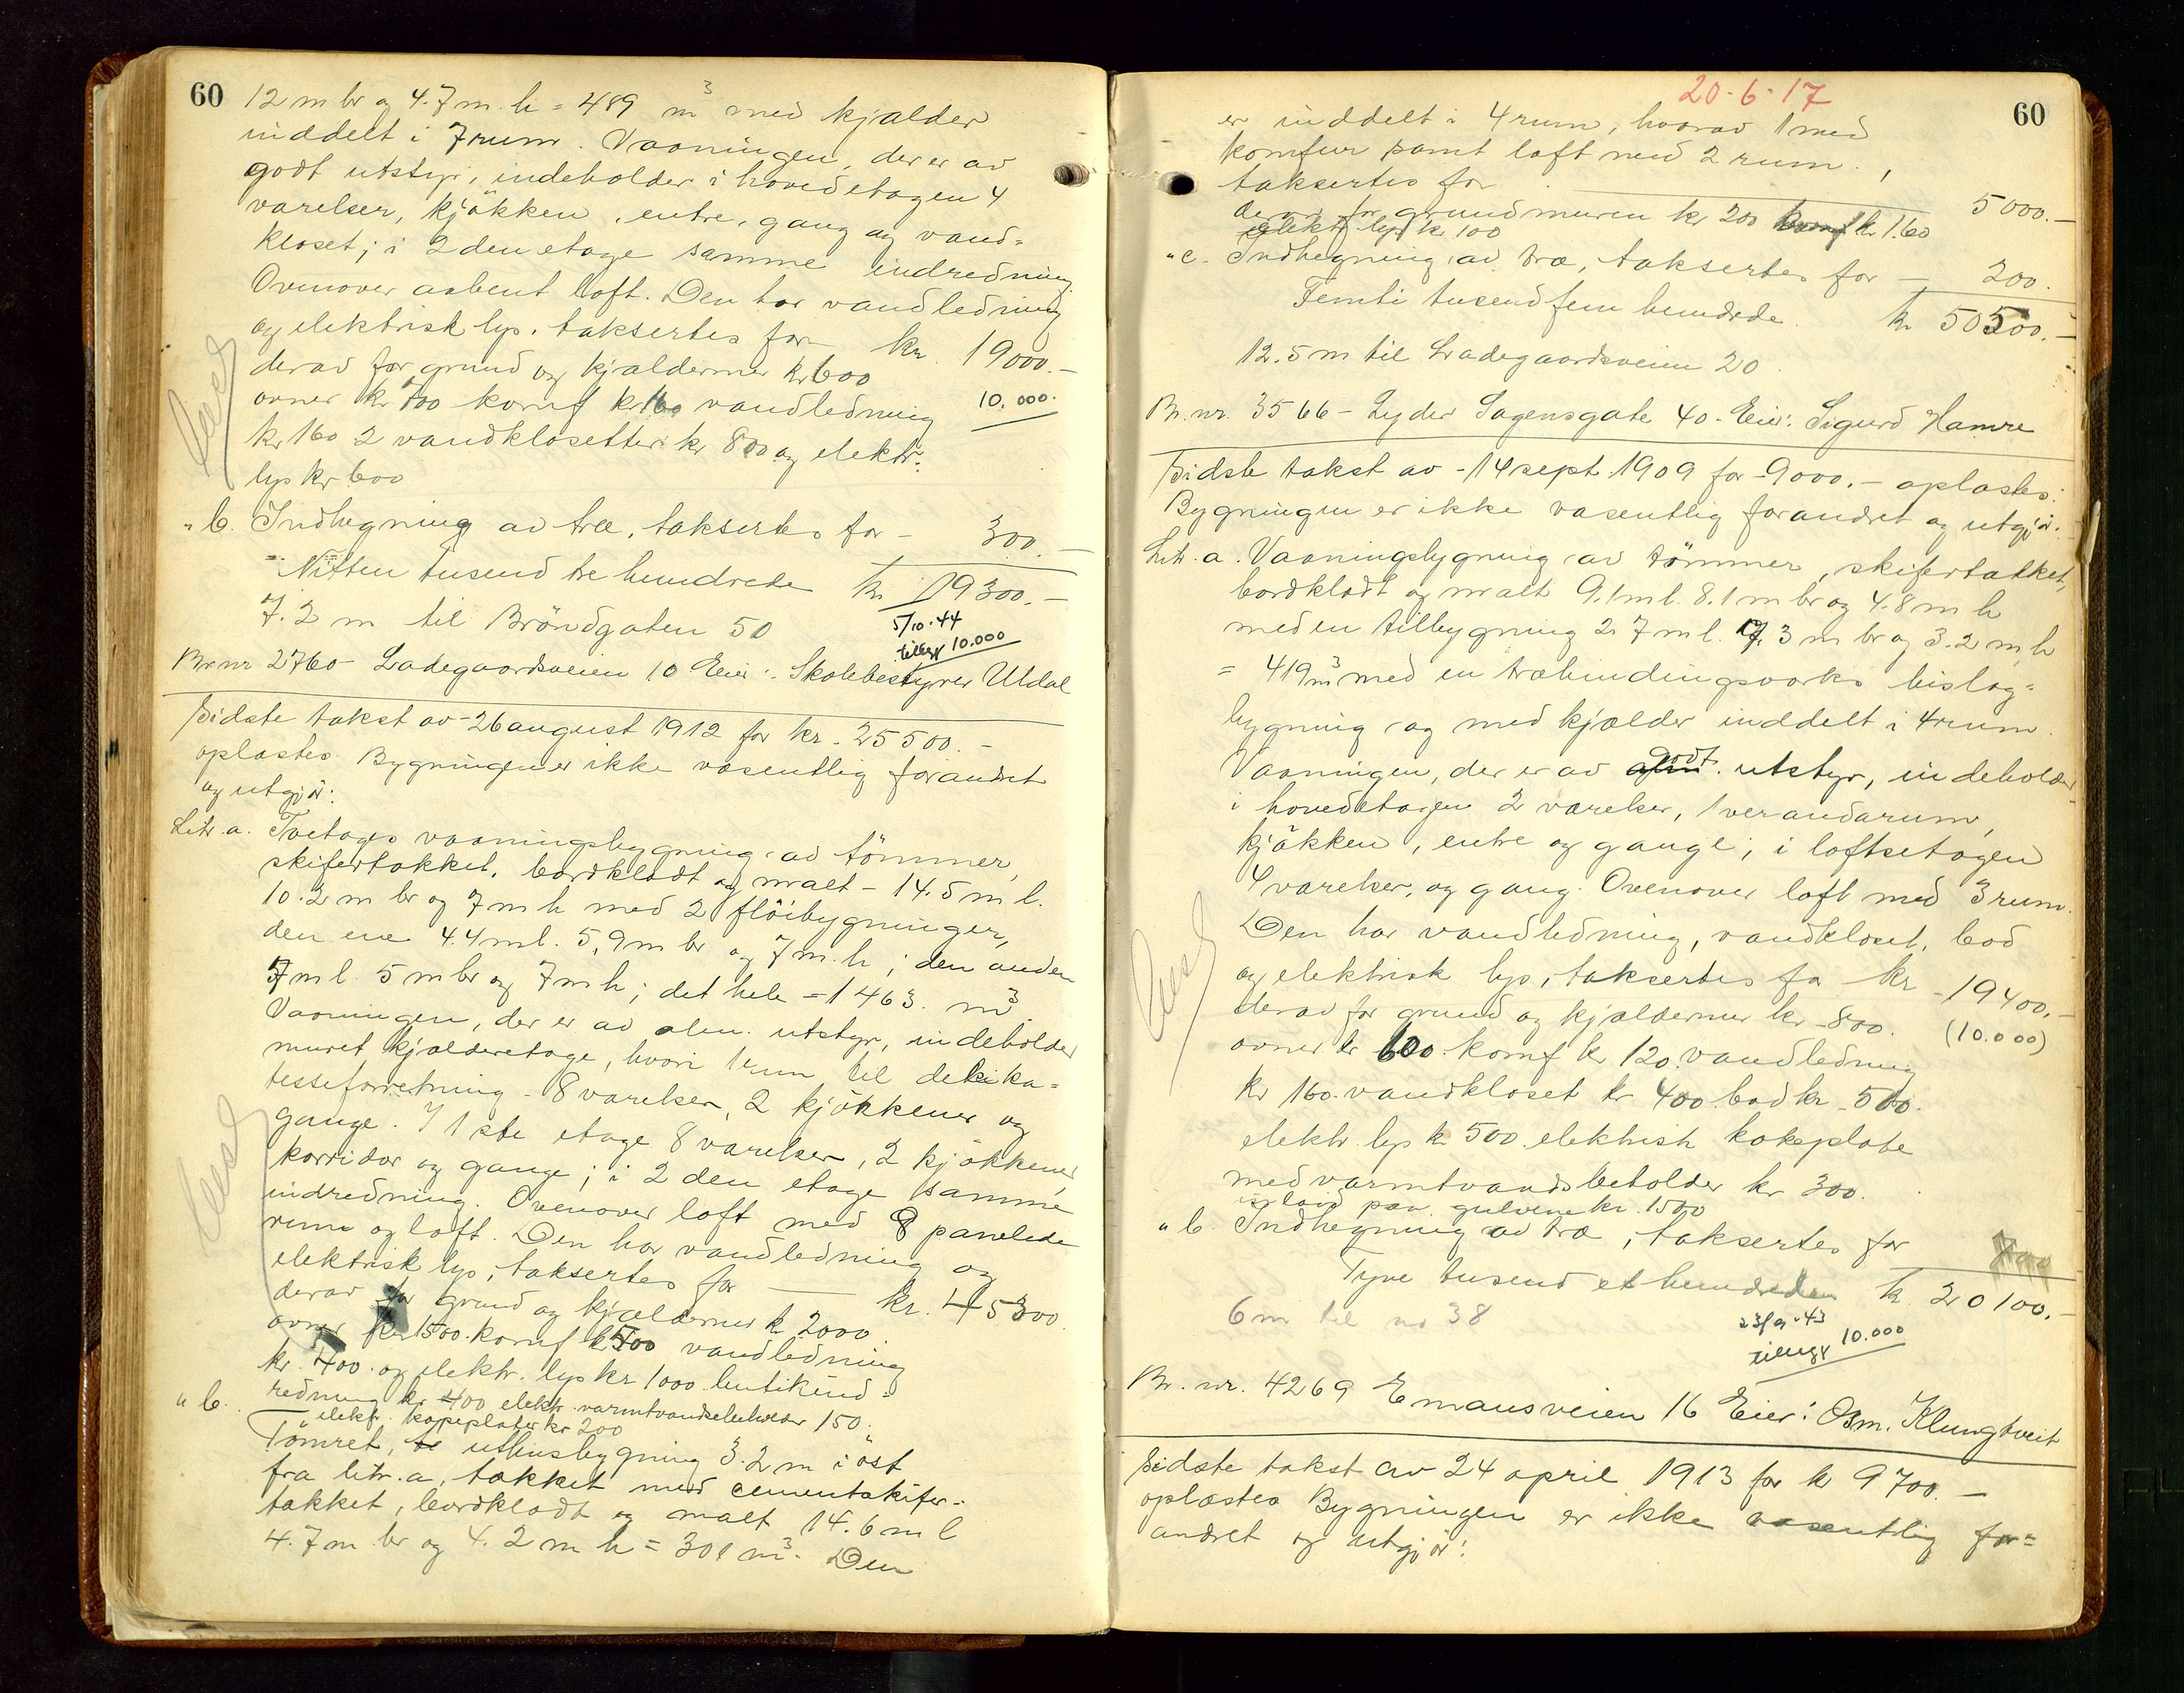 60
12 m br og 4.7 m. h = 489 m³ med kjælder
inddelt i 7 rum. Vaaningen, der er av
godt utstyr, indeholder i hovedetagen 4
værelser, kjøkken, entre, gang og vand=
kloset; i 2den etage samme indredning.
Ovenover aabent loft. Den har vandledning
og elektrisk lys, taksertes for kr. 19000.-
derav for grund og kjældermur kr 600
ovner kr 700 komf kr 160 vandledning 10.000.
kr 160 2 vandklosetter kr 800 og elektr.
lys kr 600
" b. Indhegning av træ, taksertes for - 300.-
Nitten tusend tre hundrede kr. 19300.-
7.2 m til Bröndgaten 50
5/10.44
tillegg 10.000
Br.nr 2760 - Ladegaardsveien 10 Eier: Skolebestyrer Utdal
Sidste takst av - 26 august 1912 for kr. 25500.-
oplæstes. Bygningen er ikke væsentlig forandret
og utgjör:
Litr. a. Toetages vaaningsbygning av tömmer,
skifertækket, bordklædt og malt - 14.5 m l.
10.2 m br og 7 m h med 2 flöibygninger,
den ene 4.4 m l. 5,9 m br og 7 m. h; den anden
7 m l 5 m br og 7 m h; det hele = 1463. m³
Vaaningen, der er av alm. utstyr, indeholder
muret kjælderetage, hvori 1 rum til delika=
tesseforretning - 8 værelser, 2 kjökkener og
gange. I 1ste etage 8 værelser, 2 kjökkener
korridor og gange; i 2den etage samme
indredning. Ovenover loft med 8 panelede
rum og loft. Den har vandledning og
elektrisk lys, taksertes for kr. 45300.
derav for grund og kjældermur kr. 2000
ovner kr 1500. komf kr 500 vandledning
kr. 400. og elektr. lys kr 1000 butikind=
redning kr 400 elektr. varmtvandsbeholder 150.
elektr. kokeplater kr 200
" b. Tömret, uthusbygning 3.2 m i öst
fra litr. a, tækket med cementskifer-
tækket, bordklædt og malt 14.6 m l
4.7 m br og 4.2 m h = 301 m³. Den
20-6-17
60
er inddelt i 4 rum, hvorav 1 med
komfur samt loft med 2 rum.,
taksertes for 5000.-
derav for grundmuren kr 200 komf kr 160
elektr lys kr 100
" c. Indhegning av træ, taksertes for - 200.
Femti tusend fem hundrede. kr 50500.-
12.5 m til Ladegaardsveien 20
Br. nr. 3566 - Lyder Sagensgate 40 - Eier: Sigurd Hamre
Sidste takst av - 14 sept 1909 for - 9000.- oplæstes.
Bygningen er ikke væsentlig forandret og utgjör:
Litr. a. Vaaningsbygning av tömmer, skifertækket,
bordklædt og malt 9.1 m l. 8.1 m br og 4.8 m h
med en tilbygning 2.7 m l. 7.3 m br og 3.2 m h
= 419 m³ med en træbindingsværks bislag=
bygning og med kjælder inddelt i 4 rum.
Vaaningen, der er av alm. godt utstyr, indeholder
i hovedetagen 2 værelser, 1 verandarum,
kjökken, entre og gange; i loftsetagen
4 værelser, og gang. Ovenover loft med 3 rum.
Den har vandledning, vandkloset, bad
og elektrisk lys, taksertes for kr - 19400.-
derav for grund og kjældermur kr - 800. (10.000)
ovner kr 600. komf kr 120. vandledning
kr 160. vandkloset kr 400. bad kr. 500.
elektr. lys kr 500 elektrisk kokeplate
med varmtvandsbeholder kr 300.
gulvene kr. 1500
" b. Indhegning av træ, taksertes for 700
Tyve tusend et hundrede kr 20100.-
6 m til no 38
23/9-43
tillegg 10.000
Br. nr. 4269 Emausveien 16 Eier: Osm. Klungtveit
Sidste takst av 24 april 1913 for kr 9700.-
oplæstes Bygningen er ikke væsentlig for=
andret og utgjör: